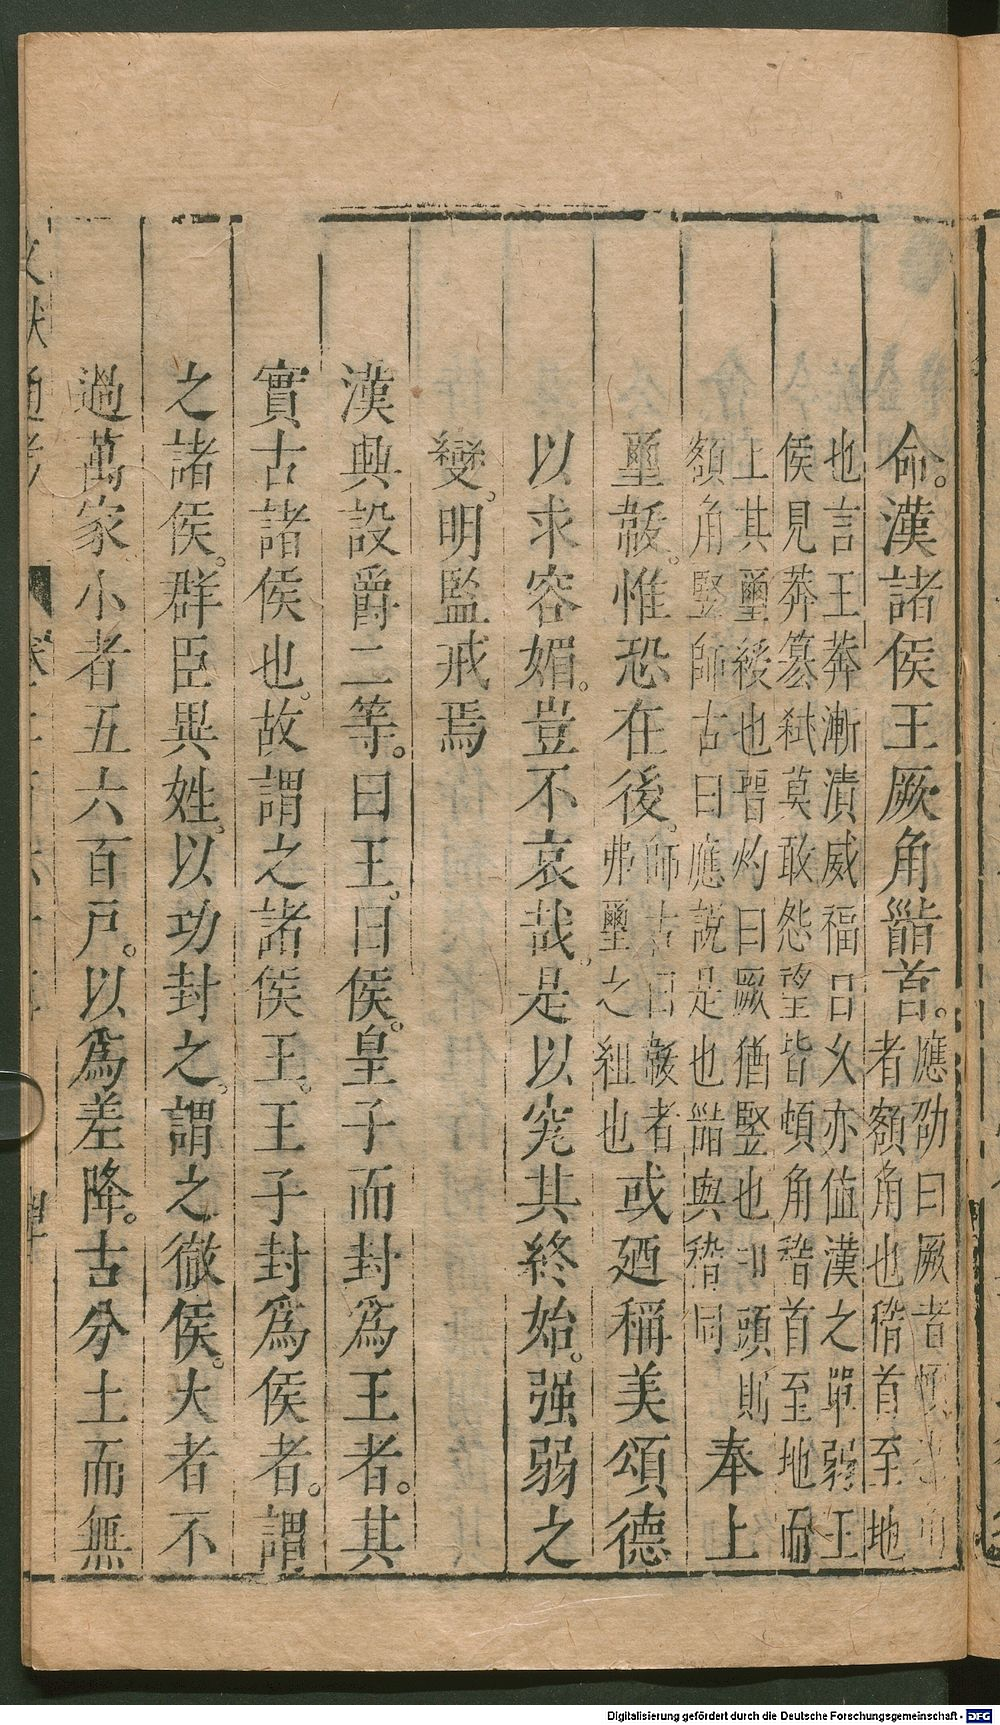 命。漢諸侯王厥角䭫首。應劭曰厥者頓也角
者額角也稽首首至地
也言王莽漸漬威福日久亦值漢之單弱王
侯見莽篡弒莫敢怨望皆頓角稽首至地而
上其璽綬也晉灼曰厥猶竪也叩頭則
額角竪師古曰應説是也䭫與稽同
奉上
璽韍。惟恐在後。師古曰韍者
弗璽之組也
或廼稱美頌德
以求容媚。豈不哀哉。是以究其終始。强弱之
變。明監戒焉
漢興設爵二等。曰王。曰侯。皇子而封爲王者。其
實古諸侯也。故謂之諸侯王。王子封爲侯者。謂
之諸侯。群臣異姓。以功封之。謂之徹侯。大者不
過萬家小者五六百戸。以爲差降。古分土而無
文獻通考
Digitalisierung gefördert durch die Deutsche Forschungsgemeinschaft - DFG